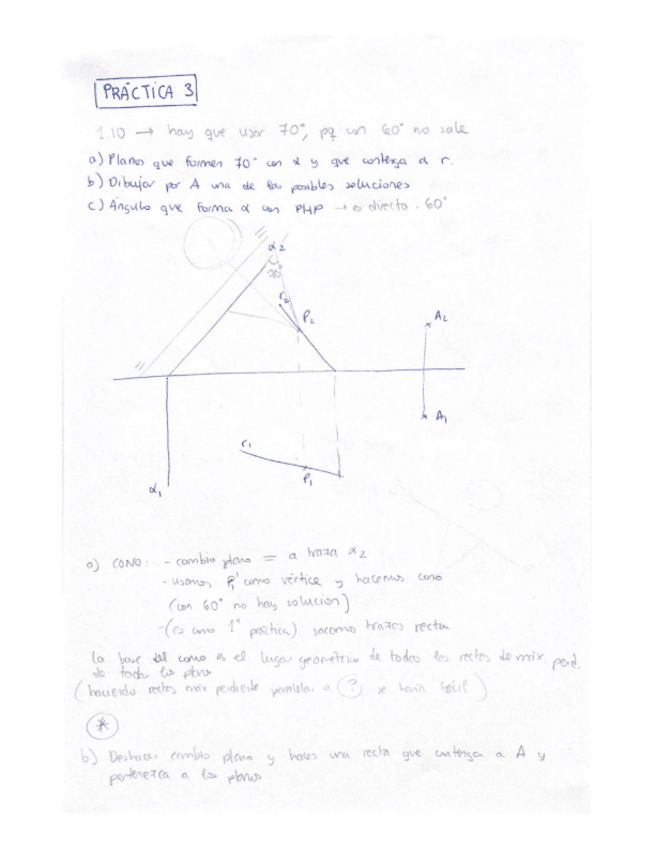 PRÁCTICA 3
1.10 → hay que usar 70°, pq con 60° no sale
a) Planos que formen 70° con α y que contenga a r.
b) Dibujar por A una de las posibles soluciones
c) Ángulo que forma α con PHP → es directo. 60°
α2
70°
r2
P2
A2
A1
r1
P1
α1
a) CONO: - cambio plano = a traza α2
- usamos P1' como vértice y hacemos cono
(con 60° no hay solución)
- (es como 1ª práctica) sacamos trazas recta
la base del cono es el lugar geométrico de todas las rectas de máx pend.
de todos los planos
(haciendo rectas máx pendiente paralelas a ? se haría fácil)
*
b) Deshaces cambio plano y haces una recta que contenga a A y
pertenezca a los planos